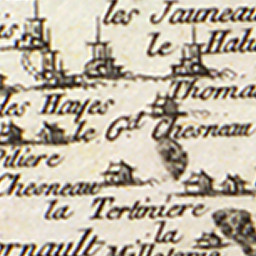 les Jauneau
le Halu
Thoma
les Hayes
le Gd. Chesneau
Piliere
Chesneau
la Tertiniere
la
ornault